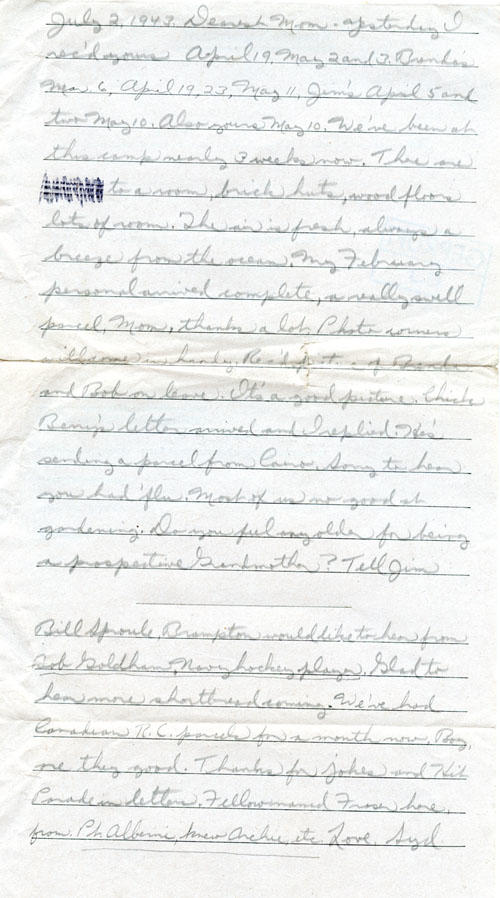 July 2, 1943. Dearest Mom - Yesterday I
rec'd yours April 19, May 2 and 3. Brenda's
Mar. 6, April 19, 23, May 11, Jim's April 5 and
two May 10. Also yours May 10. We've been at
this camp nearly 3 weeks now. There are
to a room, brick huts, wood floors
lots of room. The air is fresh, always a
breeze from the ocean. My February
personal arrived complete, a really swell
parcel, Mom, thanks a lot. Photo corners
will come in handy. Rec'd picture of
and Bob on leave. It's a good picture. Chick
letter arrived and I replied. He's
sending a parcel from Cairo. Sorry to hear
you had 'flu. Most of us no good at
gardening. Do you feel any older for being
a prospective Grandmother? Tell Jim
Bill Sproule, Brampton would like to hear from
Bob Goldham, Navy hockey player. Glad to
hear more shortbread coming. We've had
Canadian R.C. parcels for a month now. Boy,
are they good. Thanks for jokes and Hit
Parade in letters. Fellow named Fraser here,
from Pt. Alberni, knew Archie, etc. Love, Syd